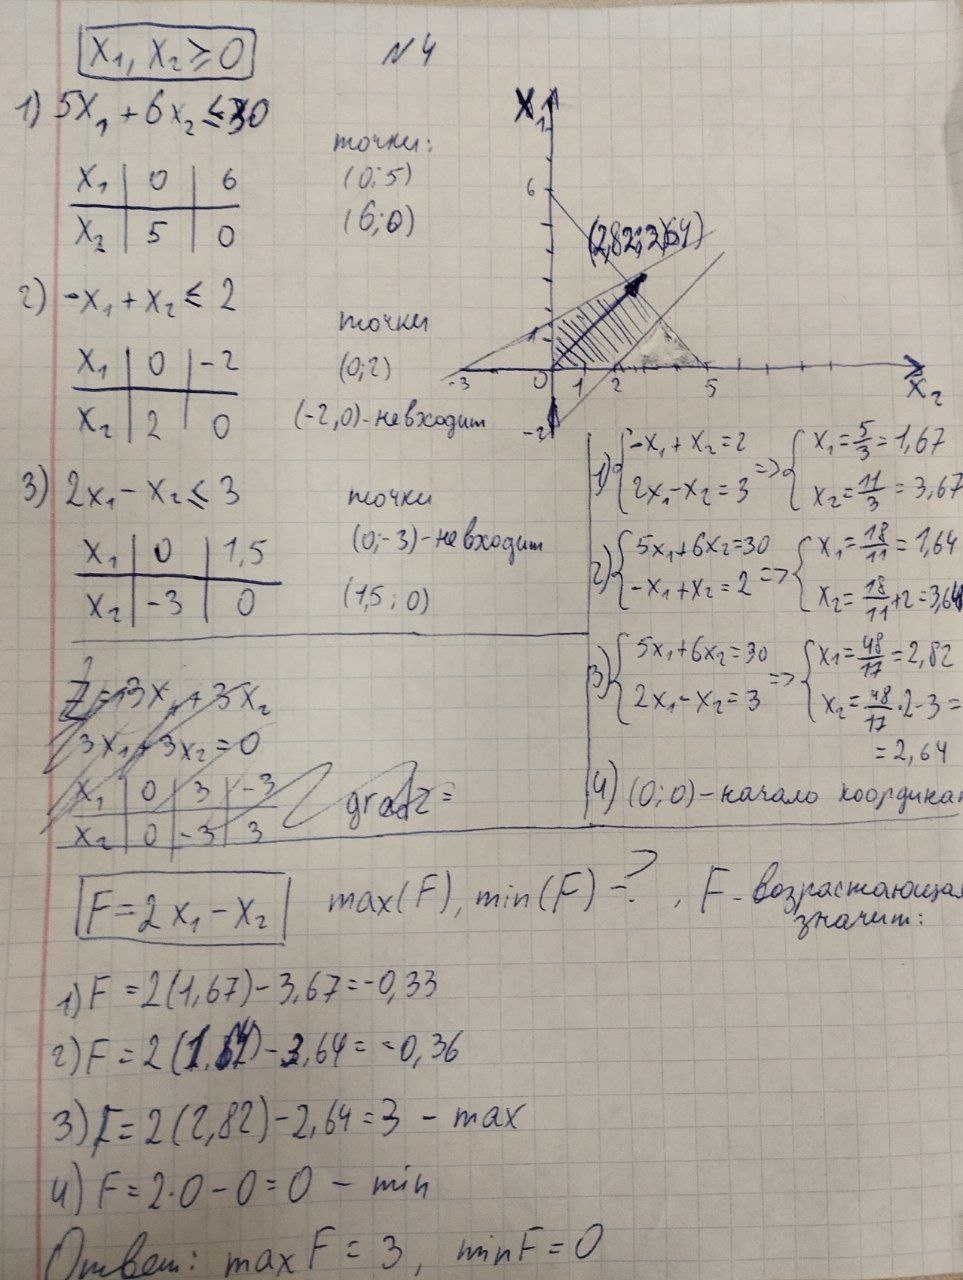 x₁, x₂ ≥ 0
N4
1) 5x₁ + 6x₂ ≤ 30
x₁ | 0 | 6
x₂ | 5 | 0
точки:
(0;5)
(6;0)
2) -x₁ + x₂ ≤ 2
x₁ | 0 | -2
x₂ | 2 | 0
точки
(0;2)
(-2,0)-не входит
3) 2x₁ - x₂ ≤ 3
x₁ | 0 | 1,5
x₂ | -3 | 0
точки
(0;-3)-не входит
(1,5;0)
x₁
6
(2,82;2,64)
1
-3 0 1 2 5
x₂
-2
1) { -x₁ + x₂ = 2 => { x₁ = 5/3 = 1,67
2x₁ - x₂ = 3 x₂ = 11/3 = 3,67
2) { 5x₁ + 6x₂ = 30 => { x₁ = 18/11 = 1,64
-x₁ + x₂ = 2 x₂ = 18/11 + 2 = 3,64
3) { 5x₁ + 6x₂ = 30 => { x₁ = 48/17 = 2,82
2x₁ - x₂ = 3 x₂ = 48/17 · 2 - 3 =
= 2,64
4) (0;0) - начало координат
Z = 3x₁ + 3x₂
3x₁ + 3x₂ = 0
x₁ | 0 | 3 | -3
x₂ | 0 | -3 | 3
grad z =
F = 2x₁ - x₂
max(F), min(F) - ?, F - возрастающая
значит:
1) F = 2(1,67) - 3,67 = -0,33
2) F = 2(1,64) - 3,64 = -0,36
3) F = 2(2,82) - 2,64 = 3 - max
4) F = 2·0 - 0 = 0 - min
Ответ: max F = 3, min F = 0